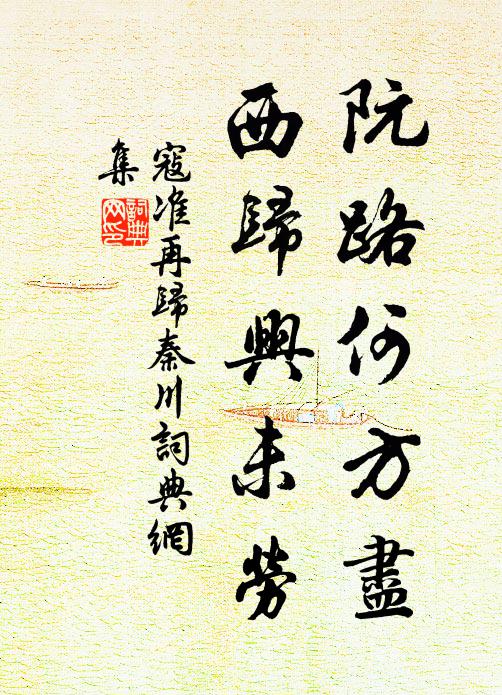 阮路何方盡
西歸興未勞
寇准再歸秦川詞典網
集
詞典
网印